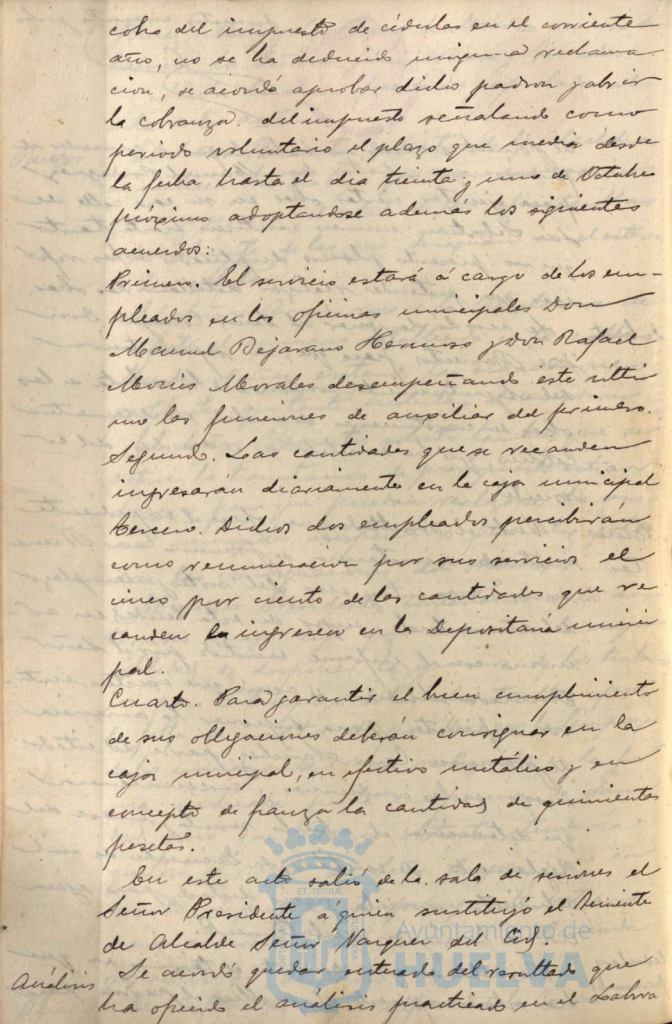 cobro del impuesto de cédulas en el corriente
año, no se ha deducido ninguna reclama
cion, se acordó aprobar dicho padron y abrir
la cobranza del impuesto señalando como
periodo voluntario el plazo que media desde
la fecha hasta el dia treinta y uno de Octubre
próximo adoptandose además los siguientes
acuerdos:
Primero. El servicio estará á cargo de los em-
pleados en las oficinas municipales Don
Manuel Bejarano Hermoso y Don Rafael
Morales desempeñando este ulti
mo las funciones de auxiliar del primero.
Segundo. Las cantidades que se recauden
ingresarán diariamente en la caja municipal
tercero. Dichos dos empleados percibirán
como remuneracion por sus servicios el
cinco por ciento de las cantidades que re
cauden é ingresen en la Depositaria munici
pal.
Cuarto. Para garantir el buen cumplimiento
de sus obligaciones deberán consignar en la
caja municipal, en efectivo metálico y en
concepto de fianza la cantidad de quinientas
pesetas.
En este acto salió de la sala de sesiones el
Señor Presidente á quien sustituyó el Teniente
de Alcalde Señor Vazquez del Cid.
Análisis Se acordó quedar enterado del resultado que
ha ofrecido el análisis practicado en el Labora
Ayuntamiento de
HUELVA